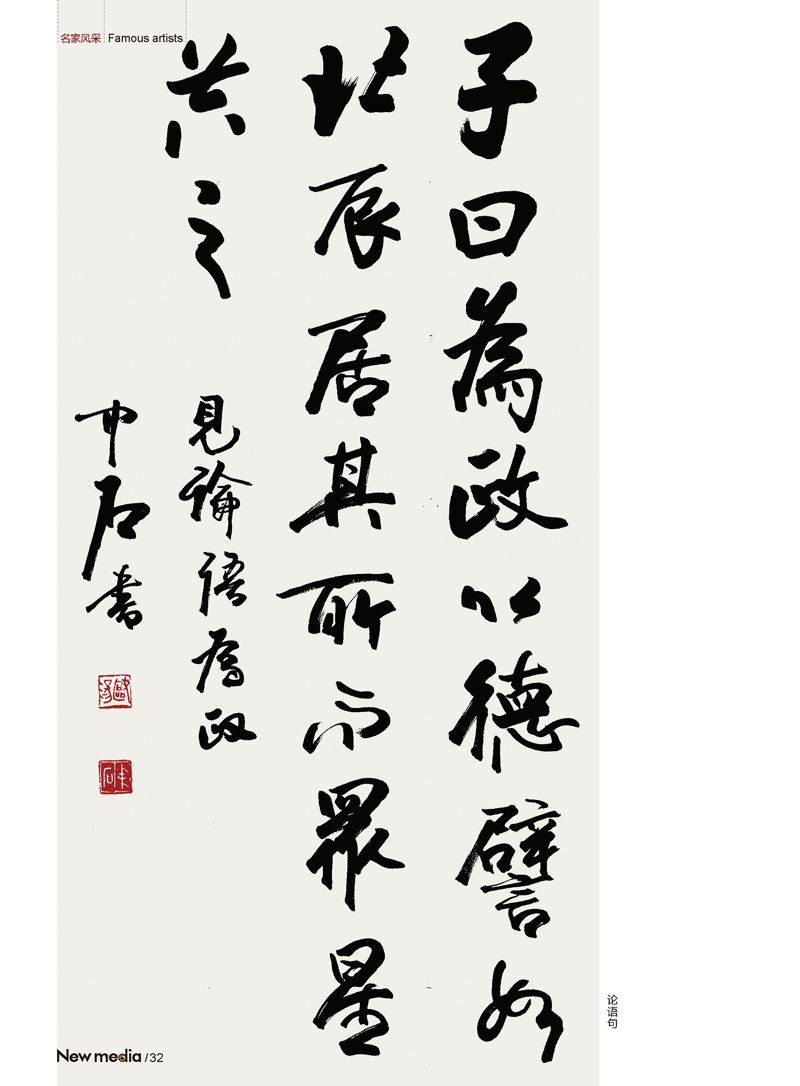 名家风采 Famous artists
子曰為政以德譬如
北辰居其所而眾星
共之
見論語為政
中石書
论语句
New media / 32